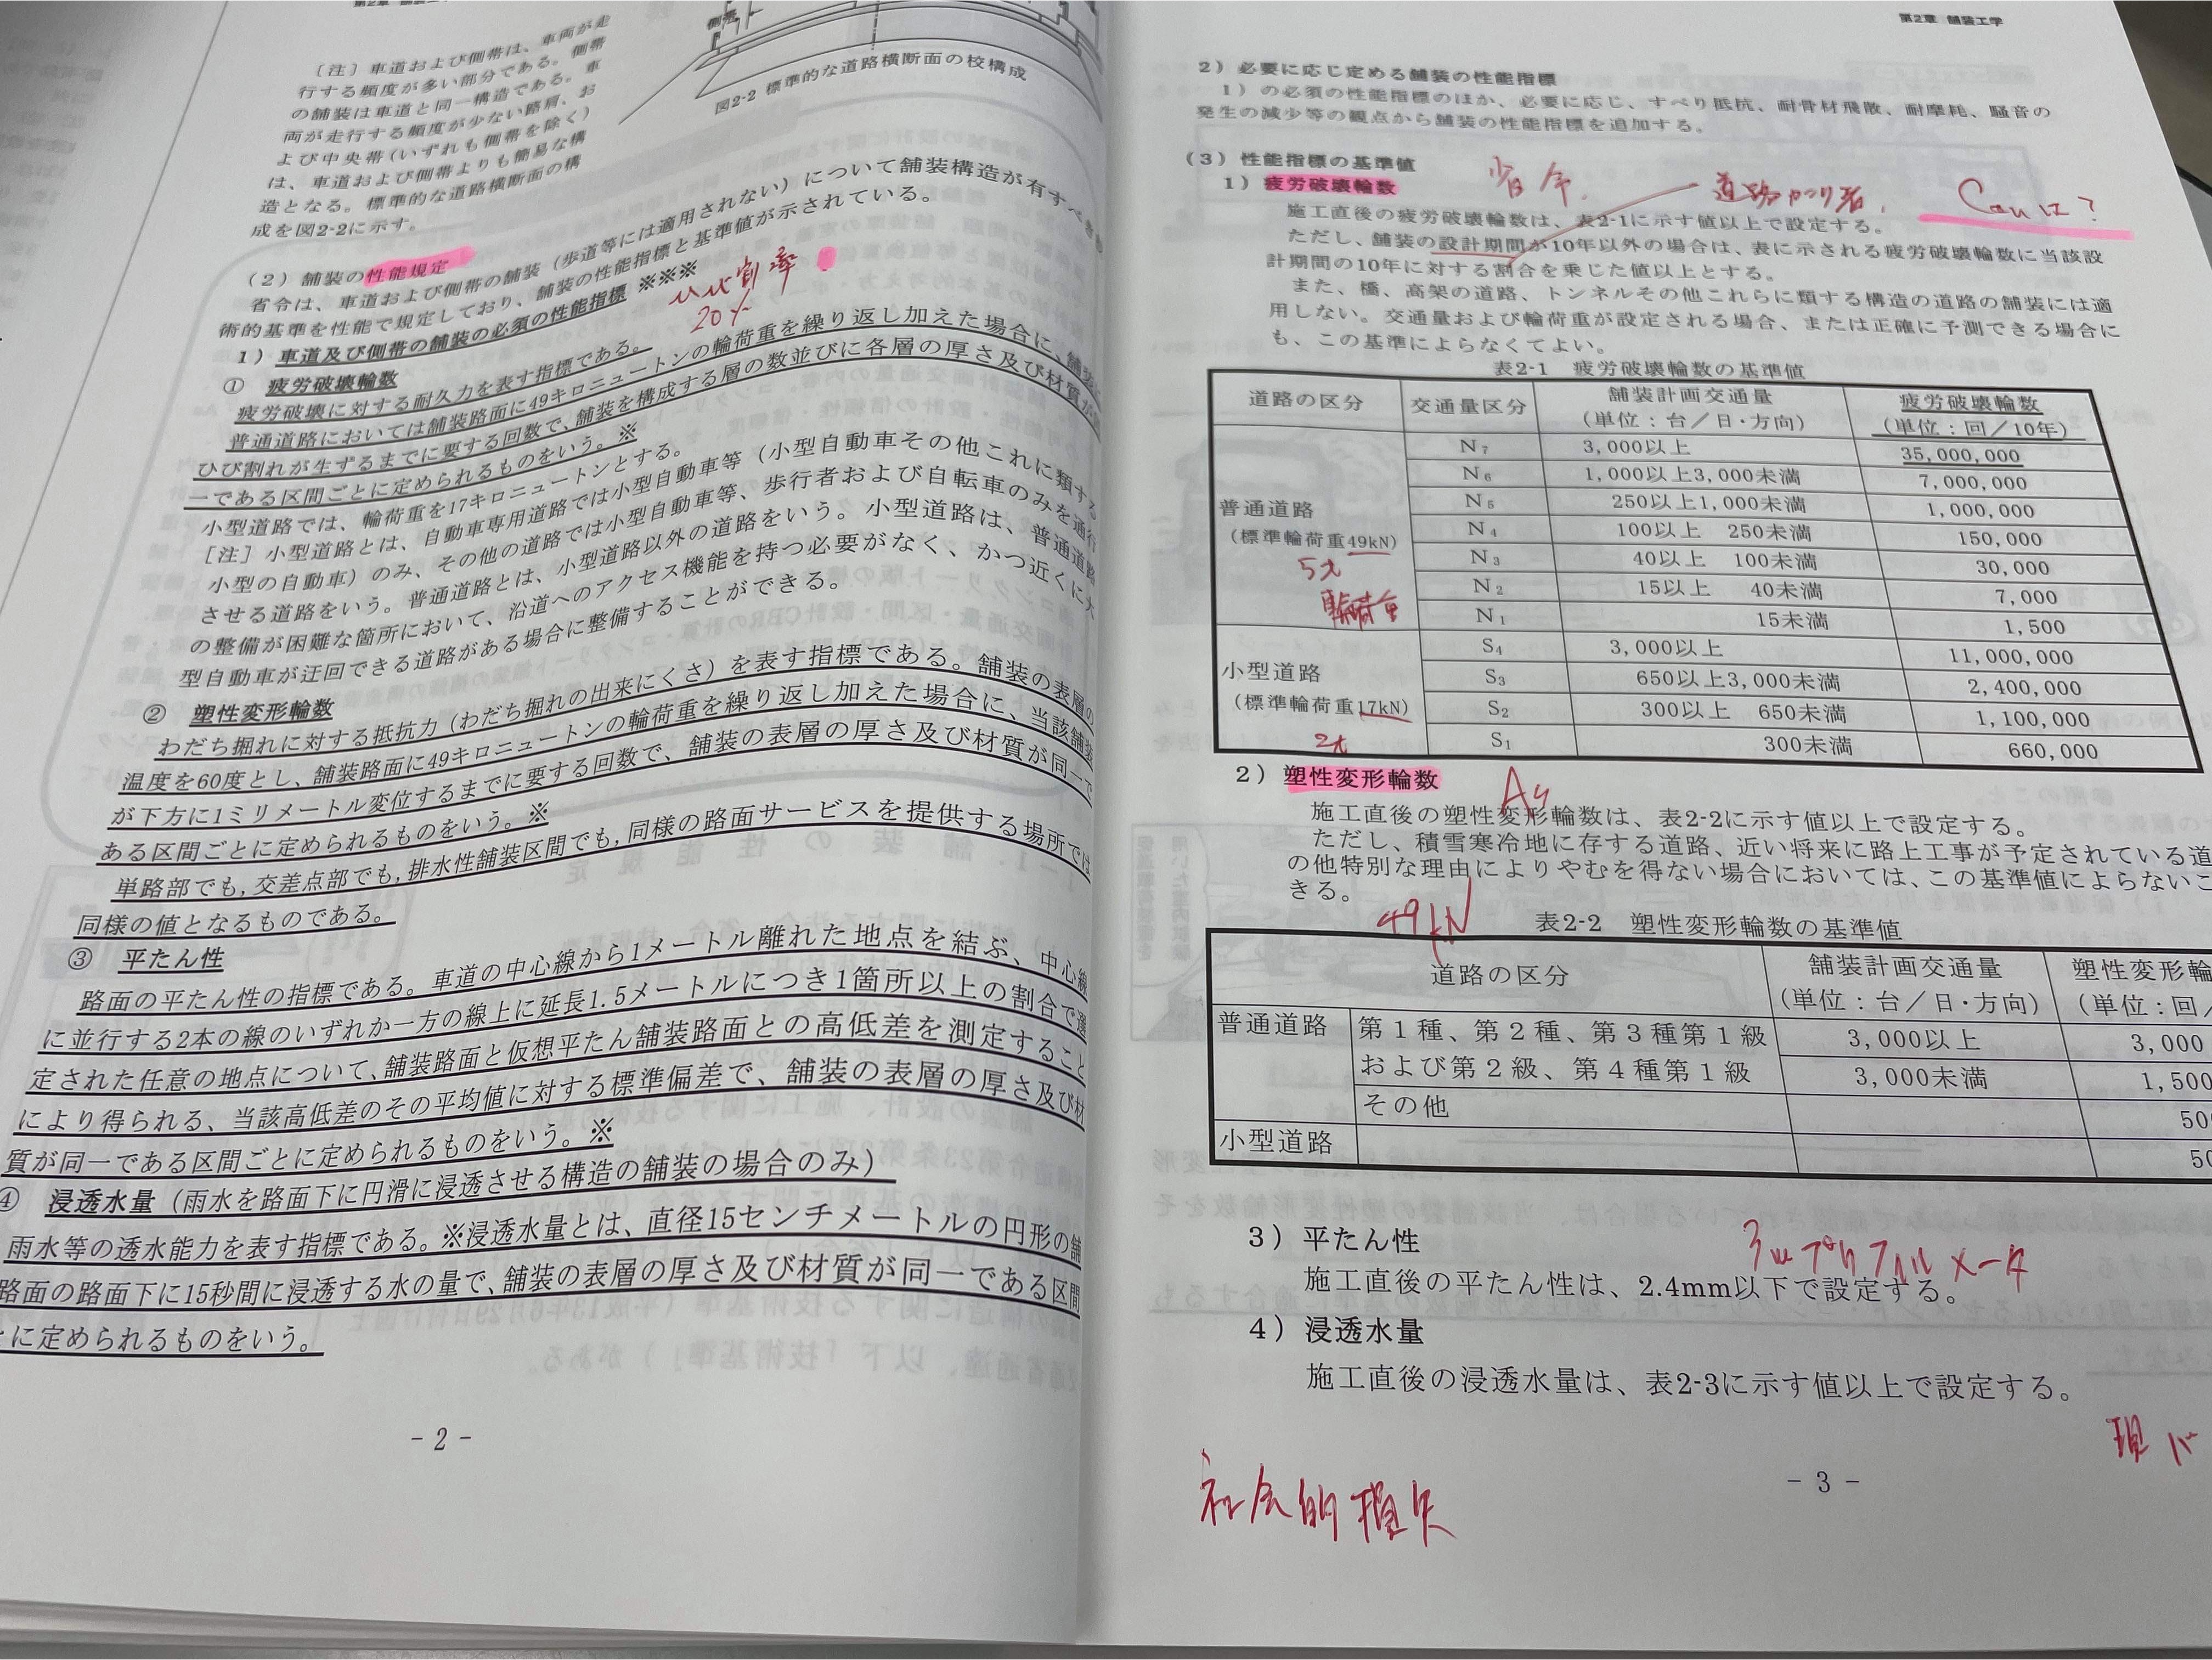 〔注〕車道および側帯は、車両が走
行する頻度が多い部分である。側帯
の舗装は車道と同一構造である。車
両が走行する頻度が少ない路肩、お
よび中央帯(いずれも側帯を除く)
は、車道および側帯よりも簡易な構
造となる。標準的な道路横断面の構
成を図2-2に示す。
側帯
図2-2 標準的な道路横断面の校構成
(2)舗装の性能規定
省令は、車道および側帯の舗装(歩道等には適用されない)について舗装構造が有すべき
術的基準を性能で規定しており、舗装の性能指標と基準値が示されている。
1)車道及び側帯の舗装の必須の性能指標 ※※※
ひび割率
20%
① 疲労破壊輪数
疲労破壊に対する耐久力を表す指標である。
普通道路においては舗装路面に49キロニュートンの輪荷重を繰り返し加えた場合に、舗装に
ひび割れが生ずるまでに要する回数で、舗装を構成する層の数並びに各層の厚さ及び材質が
一である区間ごとに定められるものをいう。※
小型道路では、輪荷重を17キロニュートンとする。
〔注〕小型道路とは、自動車専用道路では小型自動車等(小型自動車その他これに類する
小型の自動車)のみ、その他の道路では小型自動車等、歩行者および自転車のみを通行
させる道路をいう。普通道路とは、小型道路以外の道路をいう。小型道路は、普通道路
の整備が困難な箇所において、沿道へのアクセス機能を持つ必要がなく、かつ近くに大
型自動車が迂回できる道路がある場合に整備することができる。
② 塑性変形輪数
わだち掘れに対する抵抗力(わだち掘れの出来にくさ)を表す指標である。舗装の表層の
温度を60度とし、舗装路面に49キロニュートンの輪荷重を繰り返し加えた場合に、当該舗装
が下方に1ミリメートル変位するまでに要する回数で、舗装の表層の厚さ及び材質が同一で
ある区間ごとに定められるものをいう。※
単路部でも,交差点部でも,排水性舗装区間でも,同様の路面サービスを提供する場所では
同様の値となるものである。
③ 平たん性
路面の平たん性の指標である。車道の中心線から1メートル離れた地点を結ぶ、中心線
に並行する2本の線のいずれか一方の線上に延長1.5メートルにつき1箇所以上の割合で選
定された任意の地点について、舗装路面と仮想平たん舗装路面との高低差を測定すること
により得られる、当該高低差のその平均値に対する標準偏差で、舗装の表層の厚さ及び材
質が同一である区間ごとに定められるものをいう。※
④ 浸透水量(雨水を路面下に円滑に浸透させる構造の舗装の場合のみ)
雨水等の透水能力を表す指標である。※浸透水量とは、直径15センチメートルの円形の舗
路面の路面下に15秒間に浸透する水の量で、舗装の表層の厚さ及び材質が同一である区間
とに定められるものをいう。
- 2 -
第2章 舗装工学
2)必要に応じ定める舗装の性能指標
1)の必須の性能指標のほか、必要に応じ、すべり抵抗、耐骨材飛散、耐摩耗、騒音の
発生の減少等の観点から舗装の性能指標を追加する。
(3)性能指標の基準値
省令.
1)疲労破壊輪数
道路
Conは?
施工直後の疲労破壊輪数は、表2-1に示す値以上で設定する。
ただし、舗装の設計期間が10年以外の場合は、表に示される疲労破壊輪数に当該設
計期間の10年に対する割合を乗じた値以上とする。
また、橋、高架の道路、トンネルその他これらに類する構造の道路の舗装には適
用しない。交通量および輪荷重が設定される場合、または正確に予測できる場合に
も、この基準によらなくてよい。
表2-1 疲労破壊輪数の基準値
道路の区分 交通量区分 舗装計画交通量 疲労破壊輪数
(単位:台/日・方向) (単位:回/10年)
普通道路
(標準輪荷重49kN)
5t
輪荷重
N7 3,000以上 35,000,000
N6 1,000以上3,000未満 7,000,000
N5 250以上1,000未満 1,000,000
N4 100以上 250未満 150,000
N3 40以上 100未満 30,000
N2 15以上 40未満 7,000
N1 15未満 1,500
小型道路
(標準輪荷重17kN)
2t
S4 3,000以上 11,000,000
S3 650以上3,000未満 2,400,000
S2 300以上 650未満 1,100,000
S1 300未満 660,000
2)塑性変形輪数
As
施工直後の塑性変形輪数は、表2-2に示す値以上で設定する。
ただし、積雪寒冷地に存する道路、近い将来に路上工事が予定されている道
の他特別な理由によりやむを得ない場合においては、この基準値によらないこ
きる。
49kN
表2-2 塑性変形輪数の基準値
道路の区分 舗装計画交通量 塑性変形輪
(単位:台/日・方向) (単位:回/
普通道路 第1種、第2種、第3種第1級 3,000以上 3,000
および第2級、第4種第1級 3,000未満 1,500
その他 50
小型道路 50
3)平たん性
3mプロフィルメータ
施工直後の平たん性は、2.4mm以下で設定する。
4)浸透水量
施工直後の浸透水量は、表2-3に示す値以上で設定する。
現バ
社会的損失
- 3 -